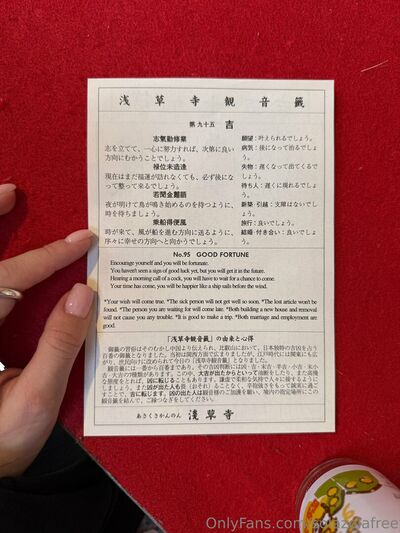 浅草寺観音籤
第九十五 吉
志氣勤修業
志を立てて、一心に努力すれば、次第に良い
方向にむかうことでしょう。
禄位未造逢
現在はまだ福運が訪れなくても、必ず後にな
って整って来るでしょう。
若聞金雞語
夜が明けて鳥が鳴き始めるのを待つように、
時を待ちましょう。
乗船得便風
時が来て、風が船を進む方向に送るように、
序々に幸せの方向へと向かうでしょう。
願望:叶えられるでしょう。
病気:後になって治るでしょう。
失物:遅くなって出てくるでしょう。
待ち人:遅くに現れるでしょう。
新築・引越:支障はないでしょう。
旅行:良いでしょう。
結婚・付き合い:良いでしょう。
No.95 GOOD FORTUNE
Encourage yourself and you will be fortunate.
You haven't seen a sign of good luck yet, but you will get it in the future.
Hearing a morning call of a cock, you will have to wait for a chance to come.
Your time has come, you will be happier like a ship sails before the wind.
*Your wish will come true. *The sick person will not get well so soon. *The lost article won't be
found. *The person you are waiting for will come late. *Both building a new house and removal
will not cause you any trouble. *It is good to make a trip. *Both marriage and employment are
good.
「浅草寺観音籤」の由来と心得
あさくさかんのん 浅草寺